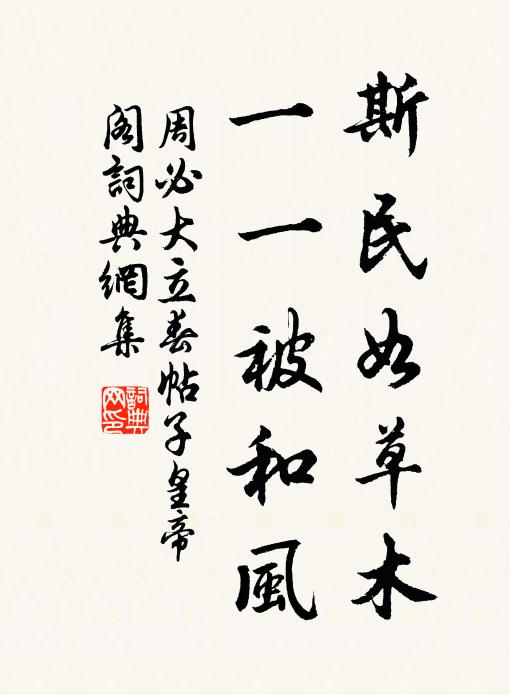 斯民如草木
一一被和風
周必大立春帖子皇帝
閣詞典網集
詞典
网印